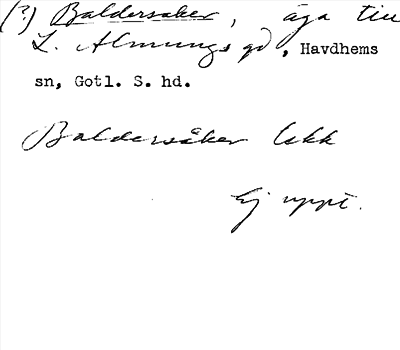 (?) Baldersåker, äga till
L. Almungs gd, Havdhems
sn, Gotl. S. hd.
Baldersåker Ukk
Ej uppt.